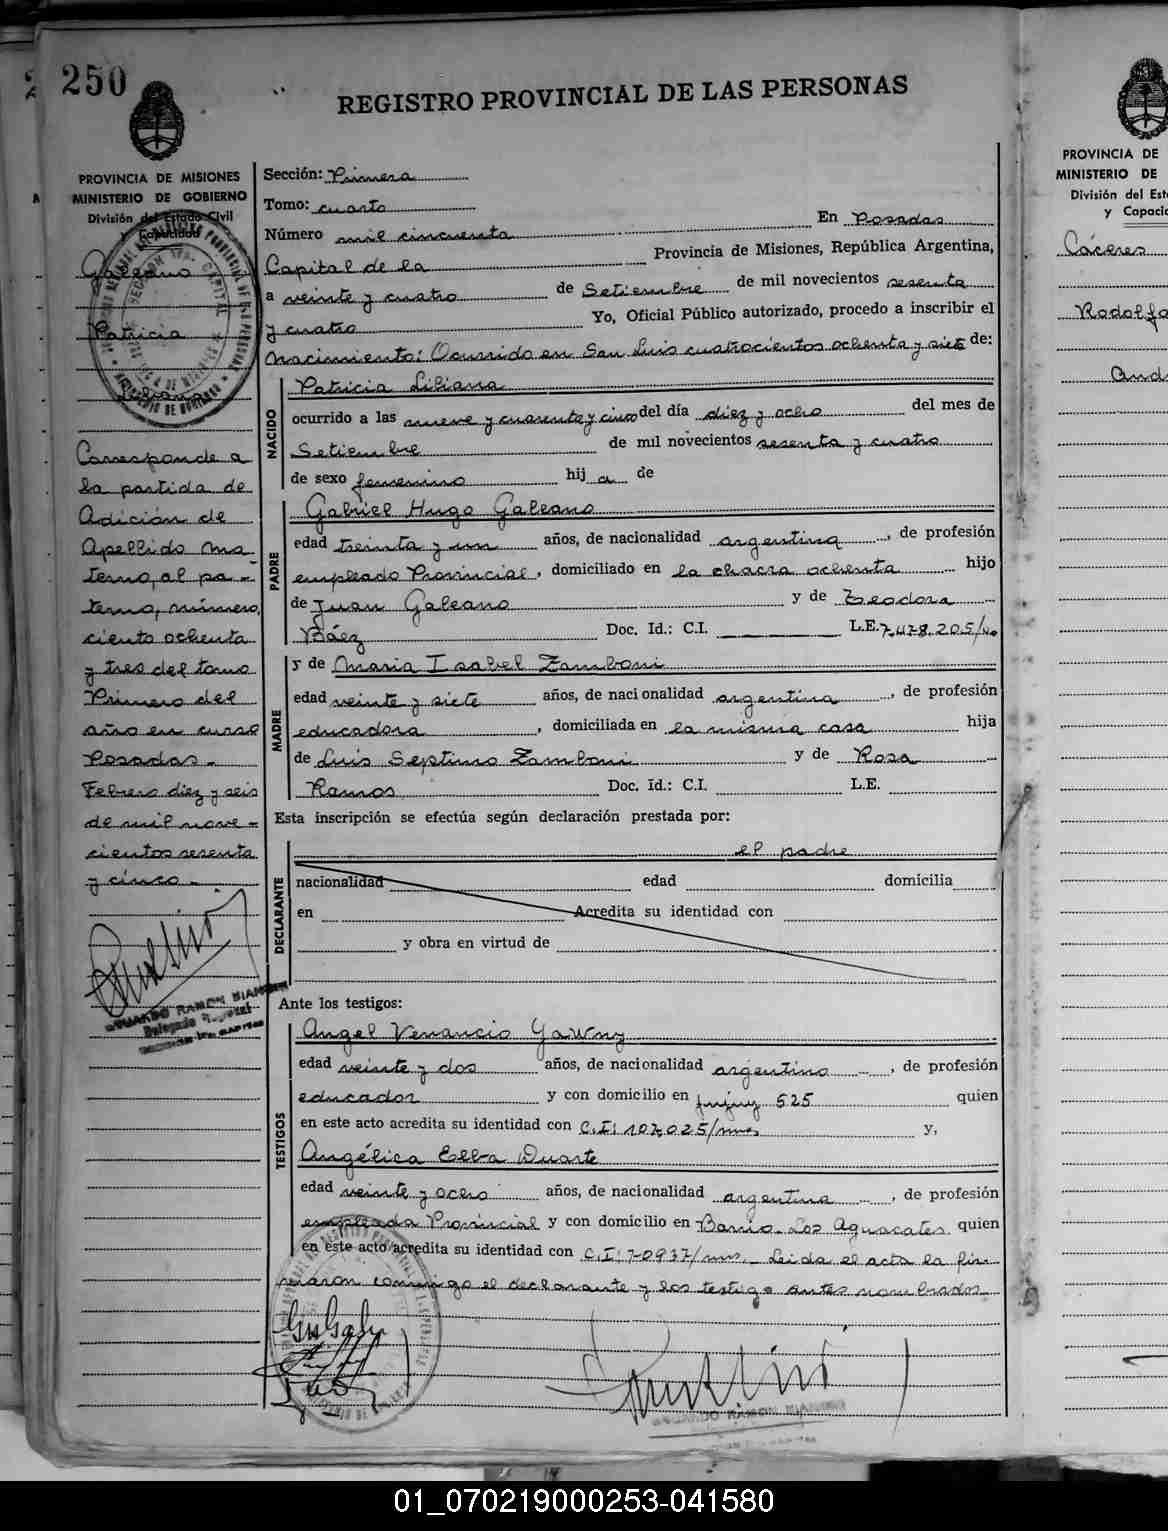 250
REGISTRO PROVINCIAL DE LAS PERSONAS
PROVINCIA DE MISIONES
MINISTERIO DE GOBIERNO
División del Estado Civil
y Capacidad
Galeano
Patricia
Liliana
Corresponde a
la partida de
Adición de
Apellido ma
terno, al pa-
terno, número
ciento ochenta
y tres del tomo
Primero del
año en curso
Posadas.-
Febrero diez y seis
de mil nove-
cientos sesenta
y cinco.-
Sección: Primera
Tomo: cuarto
Número mil cincuenta En Posadas
Capital de la Provincia de Misiones, República Argentina,
a veinte y cuatro de Setiembre de mil novecientos sesenta
y cuatro Yo, Oficial Público autorizado, procedo a inscribir el
nacimiento: Ocurrido en San Luis cuatrocientos ochenta y siete de:
NACIDO
Patricia Liliana
ocurrido a las nueve y cuarenta y cinco del día diez y ocho del mes de
Setiembre de mil novecientos sesenta y cuatro
de sexo femenino hij a de
PADRE
Gabriel Hugo Galeano
edad treinta y un años, de nacionalidad argentina, de profesión
empleado Provincial, domiciliado en la chacra ochenta hijo
de Juan Galeano y de Teodora
Báez Doc. Id.: C.I. L.E. 7.478.205/
MADRE
y de Maria Isabel Zamboni
edad veinte y siete años, de nacionalidad argentina, de profesión
educadora, domiciliada en la misma casa hija
de Luis Septimo Zamboni y de Rosa
Ramos Doc. Id.: C.I. L.E.
Esta inscripción se efectúa según declaración prestada por:
DECLARANTE
el padre
nacionalidad edad domicilia
en Acredita su identidad con
y obra en virtud de
Ante los testigos:
TESTIGOS
Angel Venancio
edad veinte y dos años, de nacionalidad argentino, de profesión
educador y con domicilio en Jujuy 525 quien
en este acto acredita su identidad con C.I: 107.025/mnes y,
Angélica Elba Duarte
edad veinte y ocho años, de nacionalidad argentina, de profesión
empleada Provincial y con domicilio en Barrio Los Aguacates quien
en este acto acredita su identidad con C.I: 70937/mns. Leida el acta la fir-
maron conmigo el declarante y los testigo antes nombrados
PROVINCIA DE
MINISTERIO DE
División del Est
y Capaci
Cáceres
Rodolfo
01_070219000253-041580